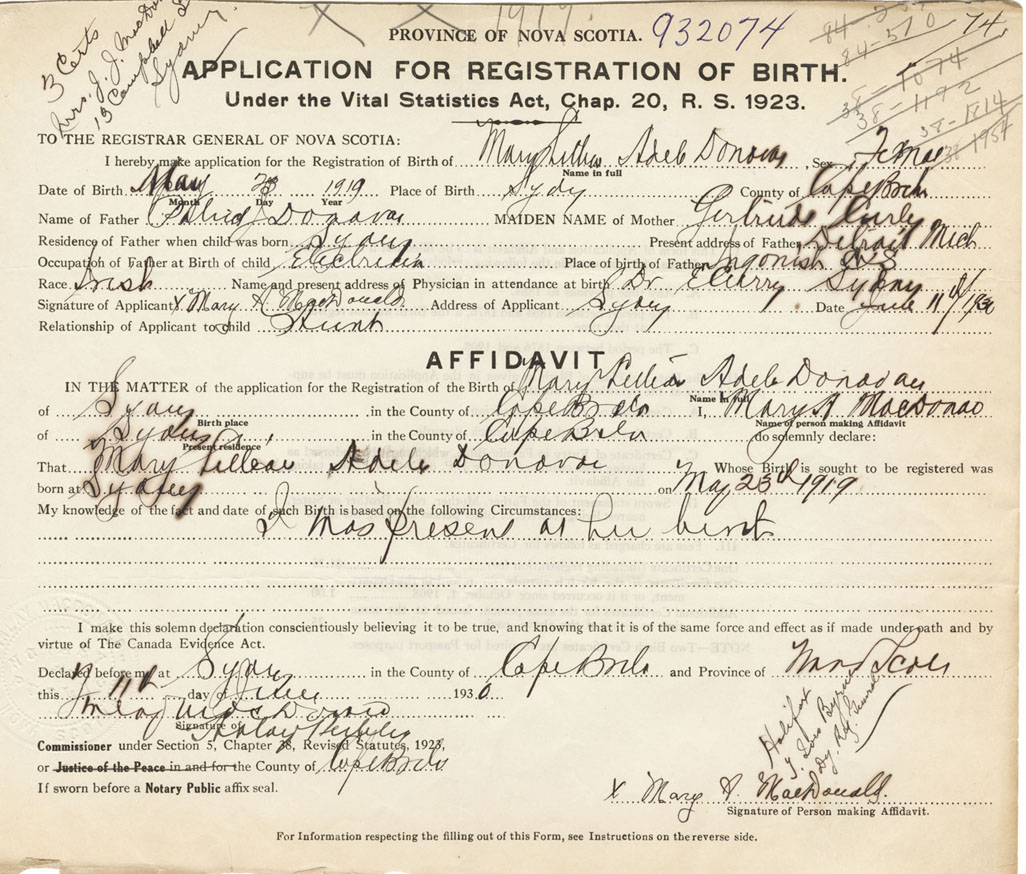 3 Certs
Mrs. J. J. MacDo
Campbell
Sydney
1919
PROVINCE OF NOVA SCOTIA. 932074
74
84-570
38-1074
38-1192
38-1814
38 1957
APPLICATION FOR REGISTRATION OF BIRTH.
Under the Vital Statistics Act, Chap. 20, R. S. 1923.
TO THE REGISTRAR GENERAL OF NOVA SCOTIA:
I hereby make application for the Registration of Birth of Mary Lillian Adele Donovan Sex Female
Name in full
Date of Birth May 23 1919 Place of Birth Sydney County of Cape Breton
Month Day Year
Name of Father Donovan MAIDEN NAME of Mother Gertrude Curley
Residence of Father when child was born Sydney Present address of Father Detroit Mich
Occupation of Father at Birth of child Electrician Place of birth of Father Ingonish N S
Race Irish Name and present address of Physician in attendance at birth Dr. Sydney
Signature of Applicant X Mary A MacDonald Address of Applicant Sydney Date June 11th/1930
Relationship of Applicant to child Aunt
AFFIDAVIT
IN THE MATTER of the application for the Registration of the Birth of Mary Lillian Adele Donovan
Name in full
of Sydney in the County of Cape Breton I, Mary A MacDonald
Birth place Name of person making Affidavit
of Sydney in the County of Cape Breton do solemnly declare:
Present residence
That Mary Lillian Adele Donovan Whose Birth is sought to be registered was
born at Sydney on May 23rd 1919
My knowledge of the fact and date of such Birth is based on the following Circumstances:
I was present at her birth
I make this solemn declaration conscientiously believing it to be true, and knowing that it is of the same force and effect as if made under oath and by
virtue of The Canada Evidence Act.
Declared before me at Sydney in the County of Cape Breton and Province of Nova Scotia
this 11th day of June 1930
Signature of
Notary Public
Commissioner under Section 5, Chapter 38, Revised Statutes, 1923,
or Justice of the Peace in and for the County of Cape Breton
If sworn before a Notary Public affix seal.
Halifax
Byrne
Dy. Reg. General
X Mary A. MacDonald.
Signature of Person making Affidavit.
For Information respecting the filling out of this Form, see Instructions on the reverse side.